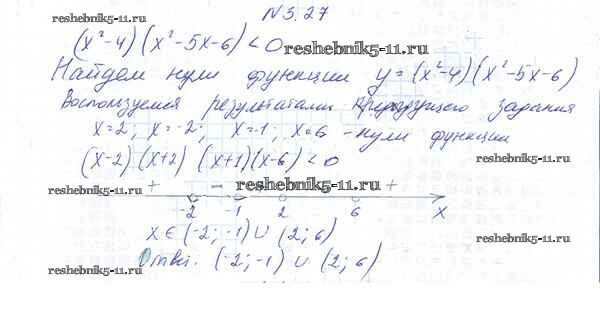 N 3.27
reshebnik5-11.ru
(x²-4)(x²-5x-6)<0
reshebnik5-11.ru
Найдем нули функции y=(x²-4)(x²-5x-6)
Воспользуемся результатами предыдущего задания
x=2; x=-2; x=-1; x=6 - нули функции
(x-2)(x+2)(x+1)(x-6)<0
+ - reshebnik5-11.ru +
-2 -1 2 6 x
x∈(-2;-1)∪(2;6)
reshebnik5-11.ru
reshebnik5-11.ru
Ответ: (-2;-1)∪(2;6)